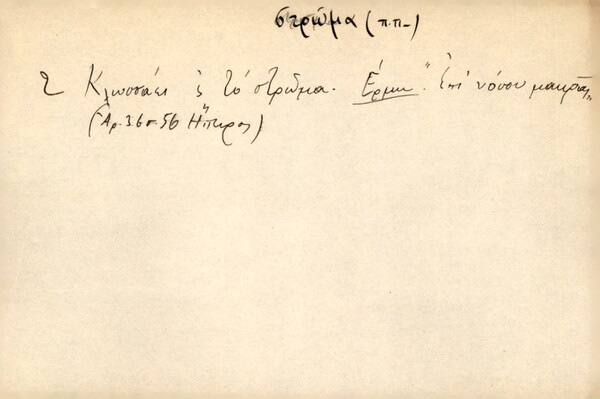 στρῶμα (π.π-)
2 Κλωσσάει 'ς τό στρῶμα. Ἑρμ. "Ἐπί νόσου μακρᾶς"
(Ἀρ. 36 σ. 56 Ἤπειρος)